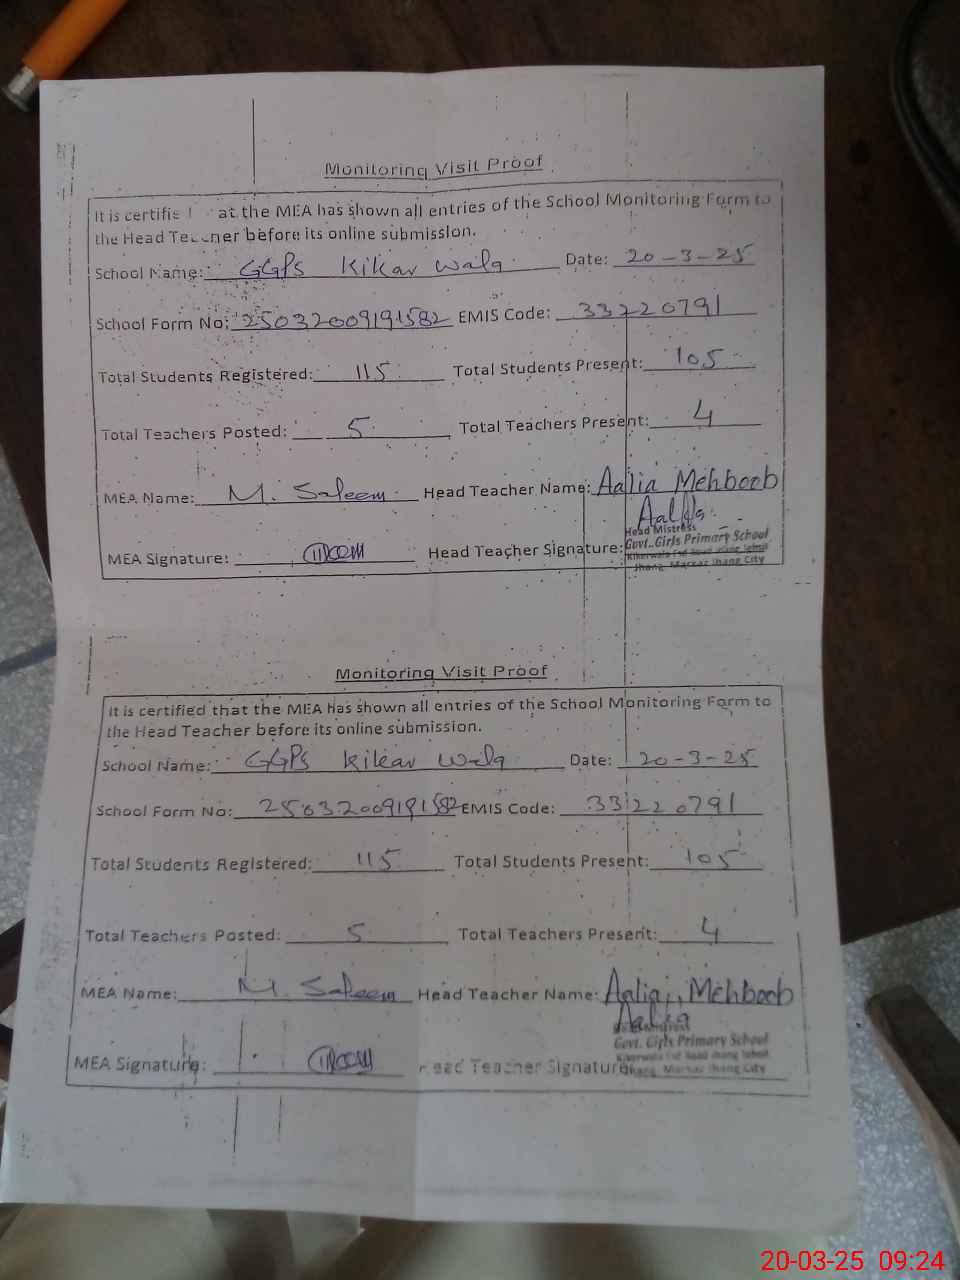 Monitoring Visit Proof
It is certifie at the MEA has shown all entries of the School Monitoring Form to
the Head Teacher before its online submission.
School Name: GGPS Kikar wala Date: 20-3-25
School Form No: 25032009191582 EMIS Code: 33220791
Total Students Registered: 115 Total Students Present: 105
Total Teachers Posted: 5 Total Teachers Present: 4
MEA Name: M. Saleem Head Teacher Name: Aalia Mehboob
Aalia
Head Mistress
MEA Signature: Head Teacher Signature: Govt. Girls Primary School
Jhang Markaz Jhang City
Monitoring Visit Proof
It is certified that the MEA has shown all entries of the School Monitoring Form to
the Head Teacher before its online submission.
School Name: GGPS Kikar wala Date: 20-3-25
School Form No: 25032009191582 EMIS Code: 33220791
Total Students Registered: 115 Total Students Present: 105
Total Teachers Posted: 5 Total Teachers Present: 4
MEA Name: M. Saleem Head Teacher Name: Aalia Mehboob
Aalia
Govt. Girls Primary School
MEA Signature: Head Teacher Signature: Markaz Jhang City
20-03-25 09:24